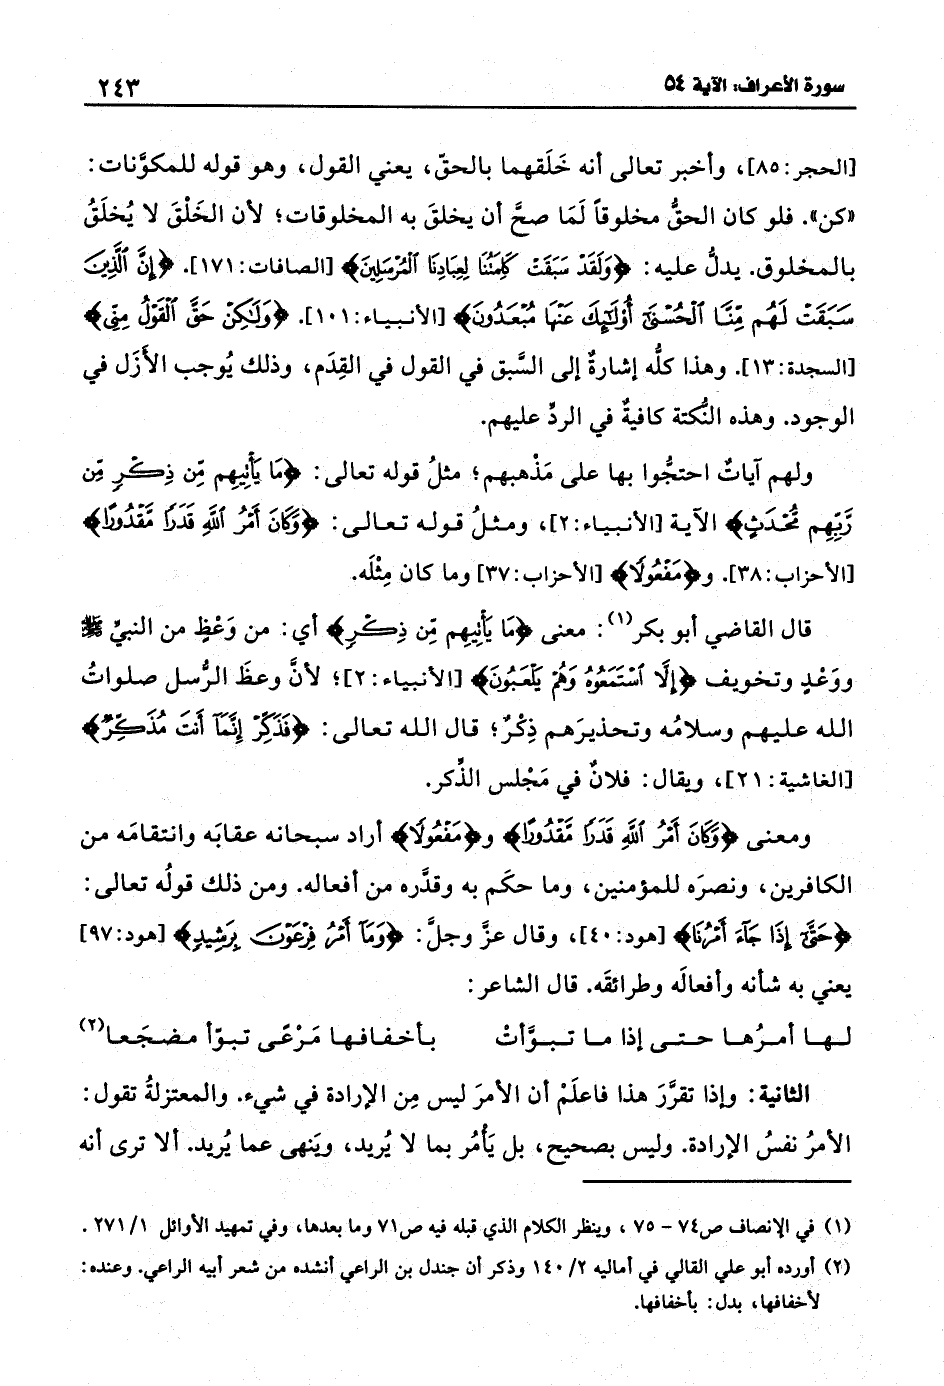 سورة الأعراف: الآية ٥٤
٢٤٣
[الحجر: ٨٥]، وأخبر تعالى أنه خَلَقهما بالحقّ، يعني القول، وهو قوله للمكوَّنات:
«كن». فلو كان الحقُّ مخلوقاً لَمَا صحَّ أن يخلقَ به المخلوقات؛ لأن الخَلْقَ لا يُخلَقُ
بالمخلوق. يدلُّ عليه: ﴿وَلَقَدْ سَبَقَتْ كَلِمَتُنَا لِعِبَادِنَا ٱلْمُرْسَلِينَ﴾ [الصافات: ١٧١]. ﴿إِنَّ ٱلَّذِينَ
سَبَقَتْ لَهُم مِّنَّا ٱلْحُسْنَىٰٓ أُوْلَٰٓئِكَ عَنْهَا مُبْعَدُونَ﴾ [الأنبياء: ١٠١]. ﴿وَلَٰكِنْ حَقَّ ٱلْقَوْلُ مِنِّي﴾
[السجدة: ١٣]. وهذا كلُّه إشارةٌ إلى السَّبق في القول في القِدَم، وذلك يُوجب الأَزَل في
الوجود. وهذه النُّكتة كافيةٌ في الردِّ عليهم.
ولهم آياتٌ احتجُّوا بها على مَذْهبهم؛ مثلُ قوله تعالى: ﴿مَا يَأْتِيهِم مِّن ذِكْرٍ مِّن
رَّبِّهِم مُّحْدَثٍ﴾ الآية [الأنبياء: ٢]، ومثلُ قوله تعالى: ﴿وَكَانَ أَمْرُ ٱللَّهِ قَدَرًا مَّقْدُورًا﴾
[الأحزاب: ٣٨]. و﴿مَفْعُولًا﴾ [الأحزاب: ٣٧] وما كان مِثْلَه.
قال القاضي أبو بكر(١): معنى ﴿مَا يَأْتِيهِم مِّن ذِكْرٍ﴾ أي: من وَعْظٍ من النبيِّ ﷺ
ووَعْدٍ وتخويف ﴿إِلَّا ٱسْتَمَعُوهُ وَهُمْ يَلْعَبُونَ﴾ [الأنبياء: ٢]؛ لأنَّ وعظَ الرُّسل صلواتُ
الله عليهم وسلامُه وتحذيرَهم ذِكْرٌ؛ قال الله تعالى: ﴿فَذَكِّرْ إِنَّمَآ أَنتَ مُذَكِّرٌ﴾
[الغاشية: ٢١]، ويقال: فلانٌ في مَجْلس الذِّكر.
ومعنى ﴿وَكَانَ أَمْرُ ٱللَّهِ قَدَرًا مَّقْدُورًا﴾ و﴿مَفْعُولًا﴾ أراد سبحانه عقابَه وانتقامَه من
الكافرين، ونصرَه للمؤمنين، وما حكَم به وقدَّره من أفعاله. ومن ذلك قولُه تعالى:
﴿حَتَّىٰٓ إِذَا جَآءَ أَمْرُنَا﴾ [هود: ٤٠]، وقال عزَّ وجلَّ: ﴿وَمَآ أَمْرُ فِرْعَوْنَ بِرَشِيدٍ﴾ [هود: ٩٧]
يعني به شأنه وأفعالَه وطرائقَه. قال الشاعر:
لها أمرُها حتى إذا ما تبوَّأتْ بأخفافها مَرْعًى تبوّأ مضجَعا(٢)
الثانية: وإذا تقرَّرَ هذا فاعلَمْ أن الأمرَ ليس مِن الإرادة في شيء. والمعتزلةُ تقول:
الأمرُ نفسُ الإرادة. وليس بصحيح، بل يَأْمُر بما لا يُريد، ويَنهى عما يُريد. ألا ترى أنه
(١) في الإنصاف ص٧٤ - ٧٥ ، وينظر الكلام الذي قبله فيه ص٧١ وما بعدها، وفي تمهيد الأوائل ١/ ٢٧١ .
(٢) أورده أبو علي القالي في أماليه ٢/ ١٤٠ وذكر أن جندل بن الراعي أنشده من شعر أبيه الراعي. وعنده:
لأخفافها، بدل: بأخفافها.